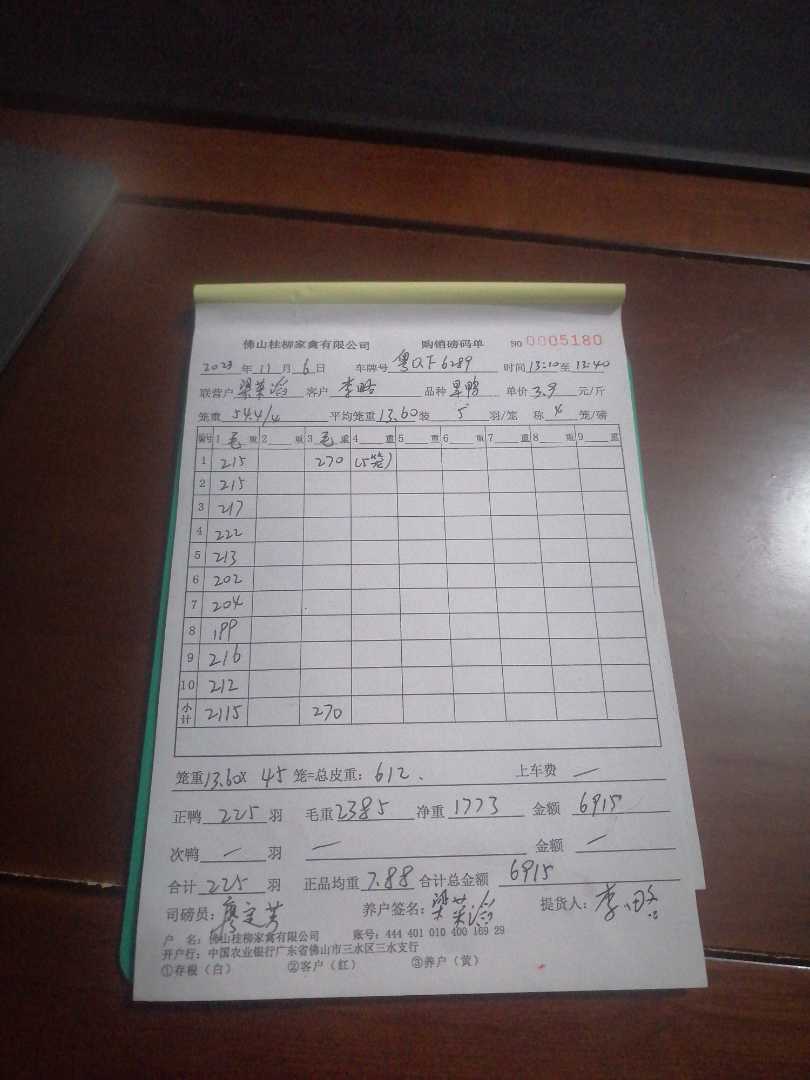 佛山桂柳家禽有限公司 购销磅码单 NO 0005180
2023 年 11 月 6 日 车牌号 粤QF6289 时间 13:10 至 13:40
联营户 梁荣滔 客户 李略 品种 旱鸭 单价 3.9 元/斤
笼重 54.4/4 平均笼重 13.60 装 5 羽/笼 称 4 笼/磅
编号 1 毛 重 2 重 3 毛 重 4 重 5 重 6 重 7 重 8 重 9 重
1 215 270 (5笼)
2 215
3 217
4 222
5 213
6 202
7 204
8 199
9 216
10 212
小计 2115 270
笼重 13.60 X 45 笼=总皮重: 612. 上车费 —
正鸭 225 羽 毛重 2385 净重 1773 金额 6915
次鸭 — 羽 — 金额 —
合计 225 羽 正品均重 7.88 合计总金额 6915
司磅员: 廖定芳 养户签名: 梁荣滔 提货人: 李略
户 名: 佛山桂柳家禽有限公司 账号: 444 401 010 400 169 29
开户行: 中国农业银行广东省佛山市三水区三水支行
①存根（白） ②客户（红） ③养户（黄）